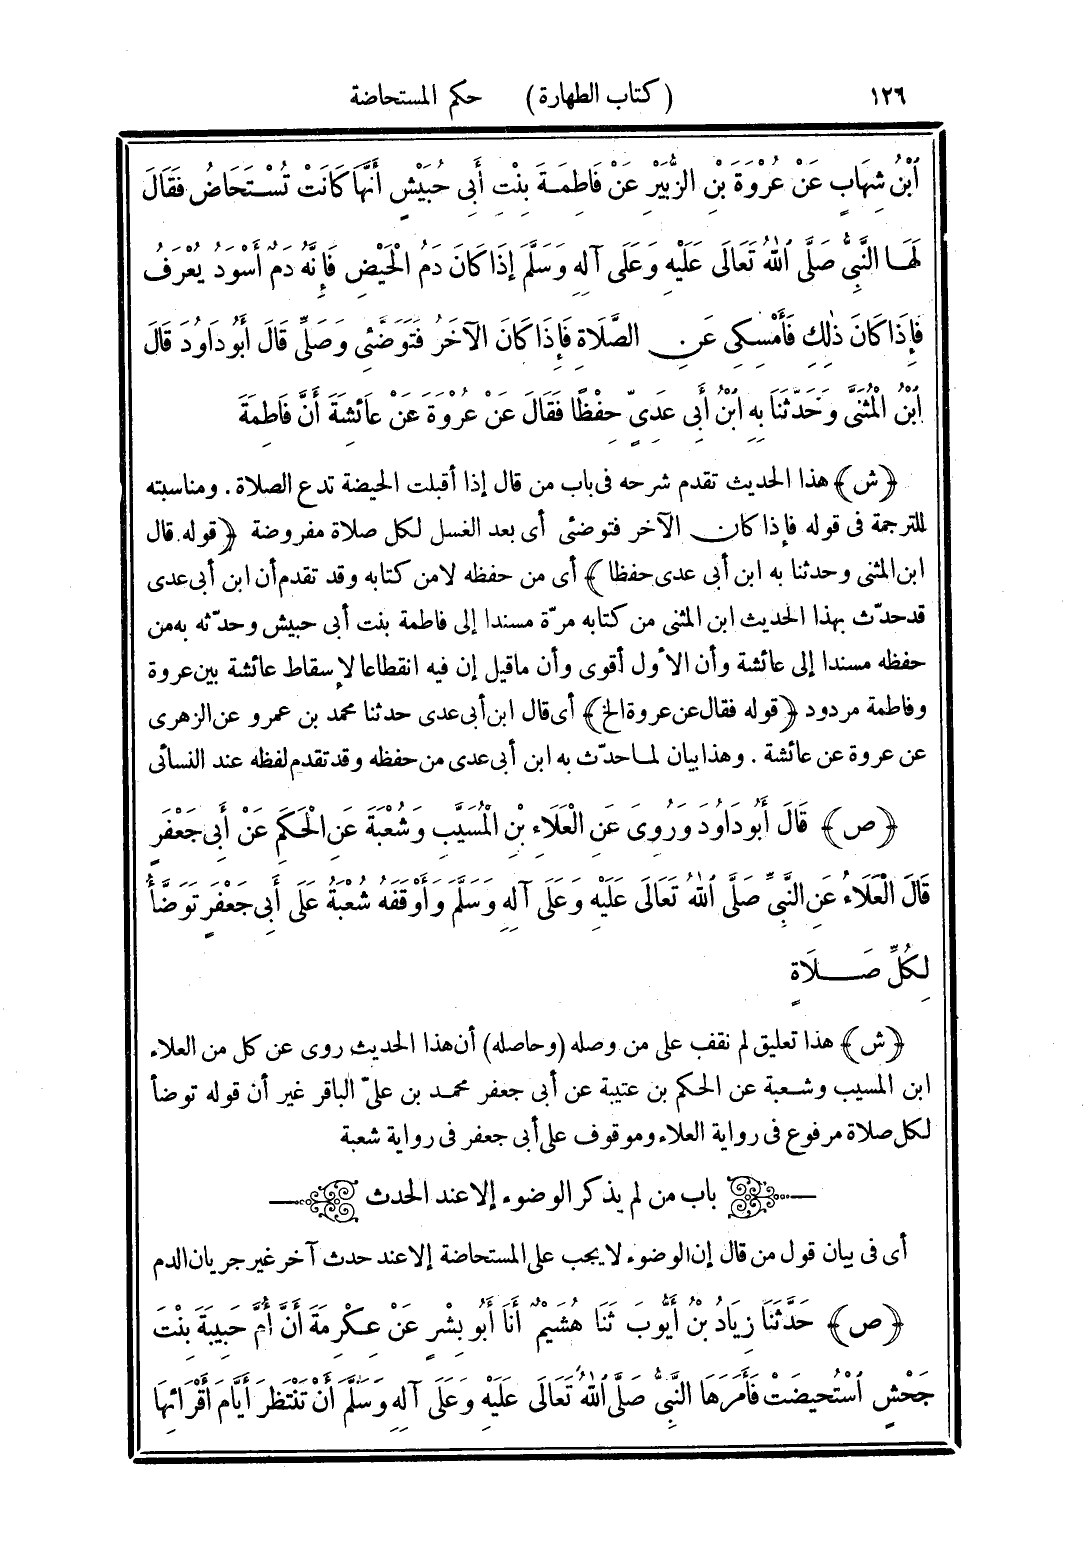 ١٢٦ (كتاب الطهارة) حكم المستحاضة
ٱبْنُ شِهَابٍ عَنْ عُرْوَةَ بْنِ الزُّبَيْرِ عَنْ فَاطِمَةَ بِنْتِ أَبِى حُبَيْشٍ أَنَّهَا كَانَتْ تُسْتَحَاضُ فَقَالَ
لَهَا النَّبِىُّ صَلَّى ٱللهُ تَعَالَى عَلَيْهِ وَعَلَى آلِهِ وَسَلَّمَ إِذَا كَانَ دَمُ الْحَيْضِ فَإِنَّهُ دَمٌ أَسْوَدُ يُعْرَفُ
فَإِذَا كَانَ ذٰلِكِ فَأَمْسِكِى عَنِ الصَّلَاةِ فَإِذَا كَانَ الآخَرُ فَتَوَضَّئِى وَصَلِّى قَالَ أَبُو دَاوُدَ قَالَ
ٱبْنُ الْمُثَنَّى وَحَدَّثَنَا بِهِ ٱبْنُ أَبِى عَدِىٍّ حِفْظًا فَقَالَ عَنْ عُرْوَةَ عَنْ عَائِشَةَ أَنَّ فَاطِمَةَ
﴿ش﴾ هذا الحديث تقدم شرحه فى باب من قال إذا أقبلت الحيضة تدع الصلاة. ومناسبته
للترجمة فى قوله فإذا كان الآخر فتوضئى أى بعد الغسل لكل صلاة مفروضة ﴿قوله قال
ابن المثنى وحدثنا به ابن أبى عدى حفظا﴾ أى من حفظه لا من كتابه وقد تقدم أن ابن أبى عدى
قد حدّث بهذا الحديث ابن المثنى من كتابه مرّة مسندا إلى فاطمة بنت أبى حبيش وحدّثه به من
حفظه مسندا إلى عائشة وأن الأول أقوى وأن ما قيل إن فيه انقطاعا لإسقاط عائشة بين عروة
وفاطمة مردود ﴿قوله فقال عن عروة الخ﴾ أى قال ابن أبى عدى حدثنا محمد بن عمرو عن الزهرى
عن عروة عن عائشة. وهذا بيان لما حدّث به ابن أبى عدى من حفظه وقد تقدم لفظه عند النسائى
﴿ص﴾ قَالَ أَبُو دَاوُدَ وَرُوِىَ عَنِ الْعَلَاءِ بْنِ الْمُسَيَّبِ وَشُعْبَةَ عَنِ الْحَكَمِ عَنْ أَبِى جَعْفَرٍ
قَالَ الْعَلَاءُ عَنِ النَّبِىِّ صَلَّى ٱللهُ تَعَالَى عَلَيْهِ وَعَلَى آلِهِ وَسَلَّمَ وَأَوْقَفَهُ شُعْبَةُ عَلَى أَبِى جَعْفَرٍ تَوَضَّأُ
لِكُلِّ صَلَاةٍ
﴿ش﴾ هذا تعليق لم نقف على من وصله (وحاصله) أن هذا الحديث روى عن كل من العلاء
ابن المسيب وشعبة عن الحكم بن عتيبة عن أبى جعفر محمد بن علىّ الباقر غير أن قوله توضأ
لكل صلاة مرفوع فى رواية العلاء وموقوف على أبى جعفر فى رواية شعبة
باب من لم يذكر الوضوء إلا عند الحدث
أى فى بيان قول من قال إن الوضوء لا يجب على المستحاضة إلا عند حدث آخر غير جريان الدم
﴿ص﴾ حَدَّثَنَا زِيَادُ بْنُ أَيُّوبَ ثَنَا هُشَيْمٌ أَنَا أَبُو بِشْرٍ عَنْ عِكْرِمَةَ أَنَّ أُمَّ حَبِيبَةَ بِنْتَ
جَحْشٍ ٱسْتُحِيضَتْ فَأَمَرَهَا النَّبِىُّ صَلَّى ٱللهُ تَعَالَى عَلَيْهِ وَعَلَى آلِهِ وَسَلَّمَ أَنْ تَنْتَظِرَ أَيَّامَ أَقْرَائِهَا